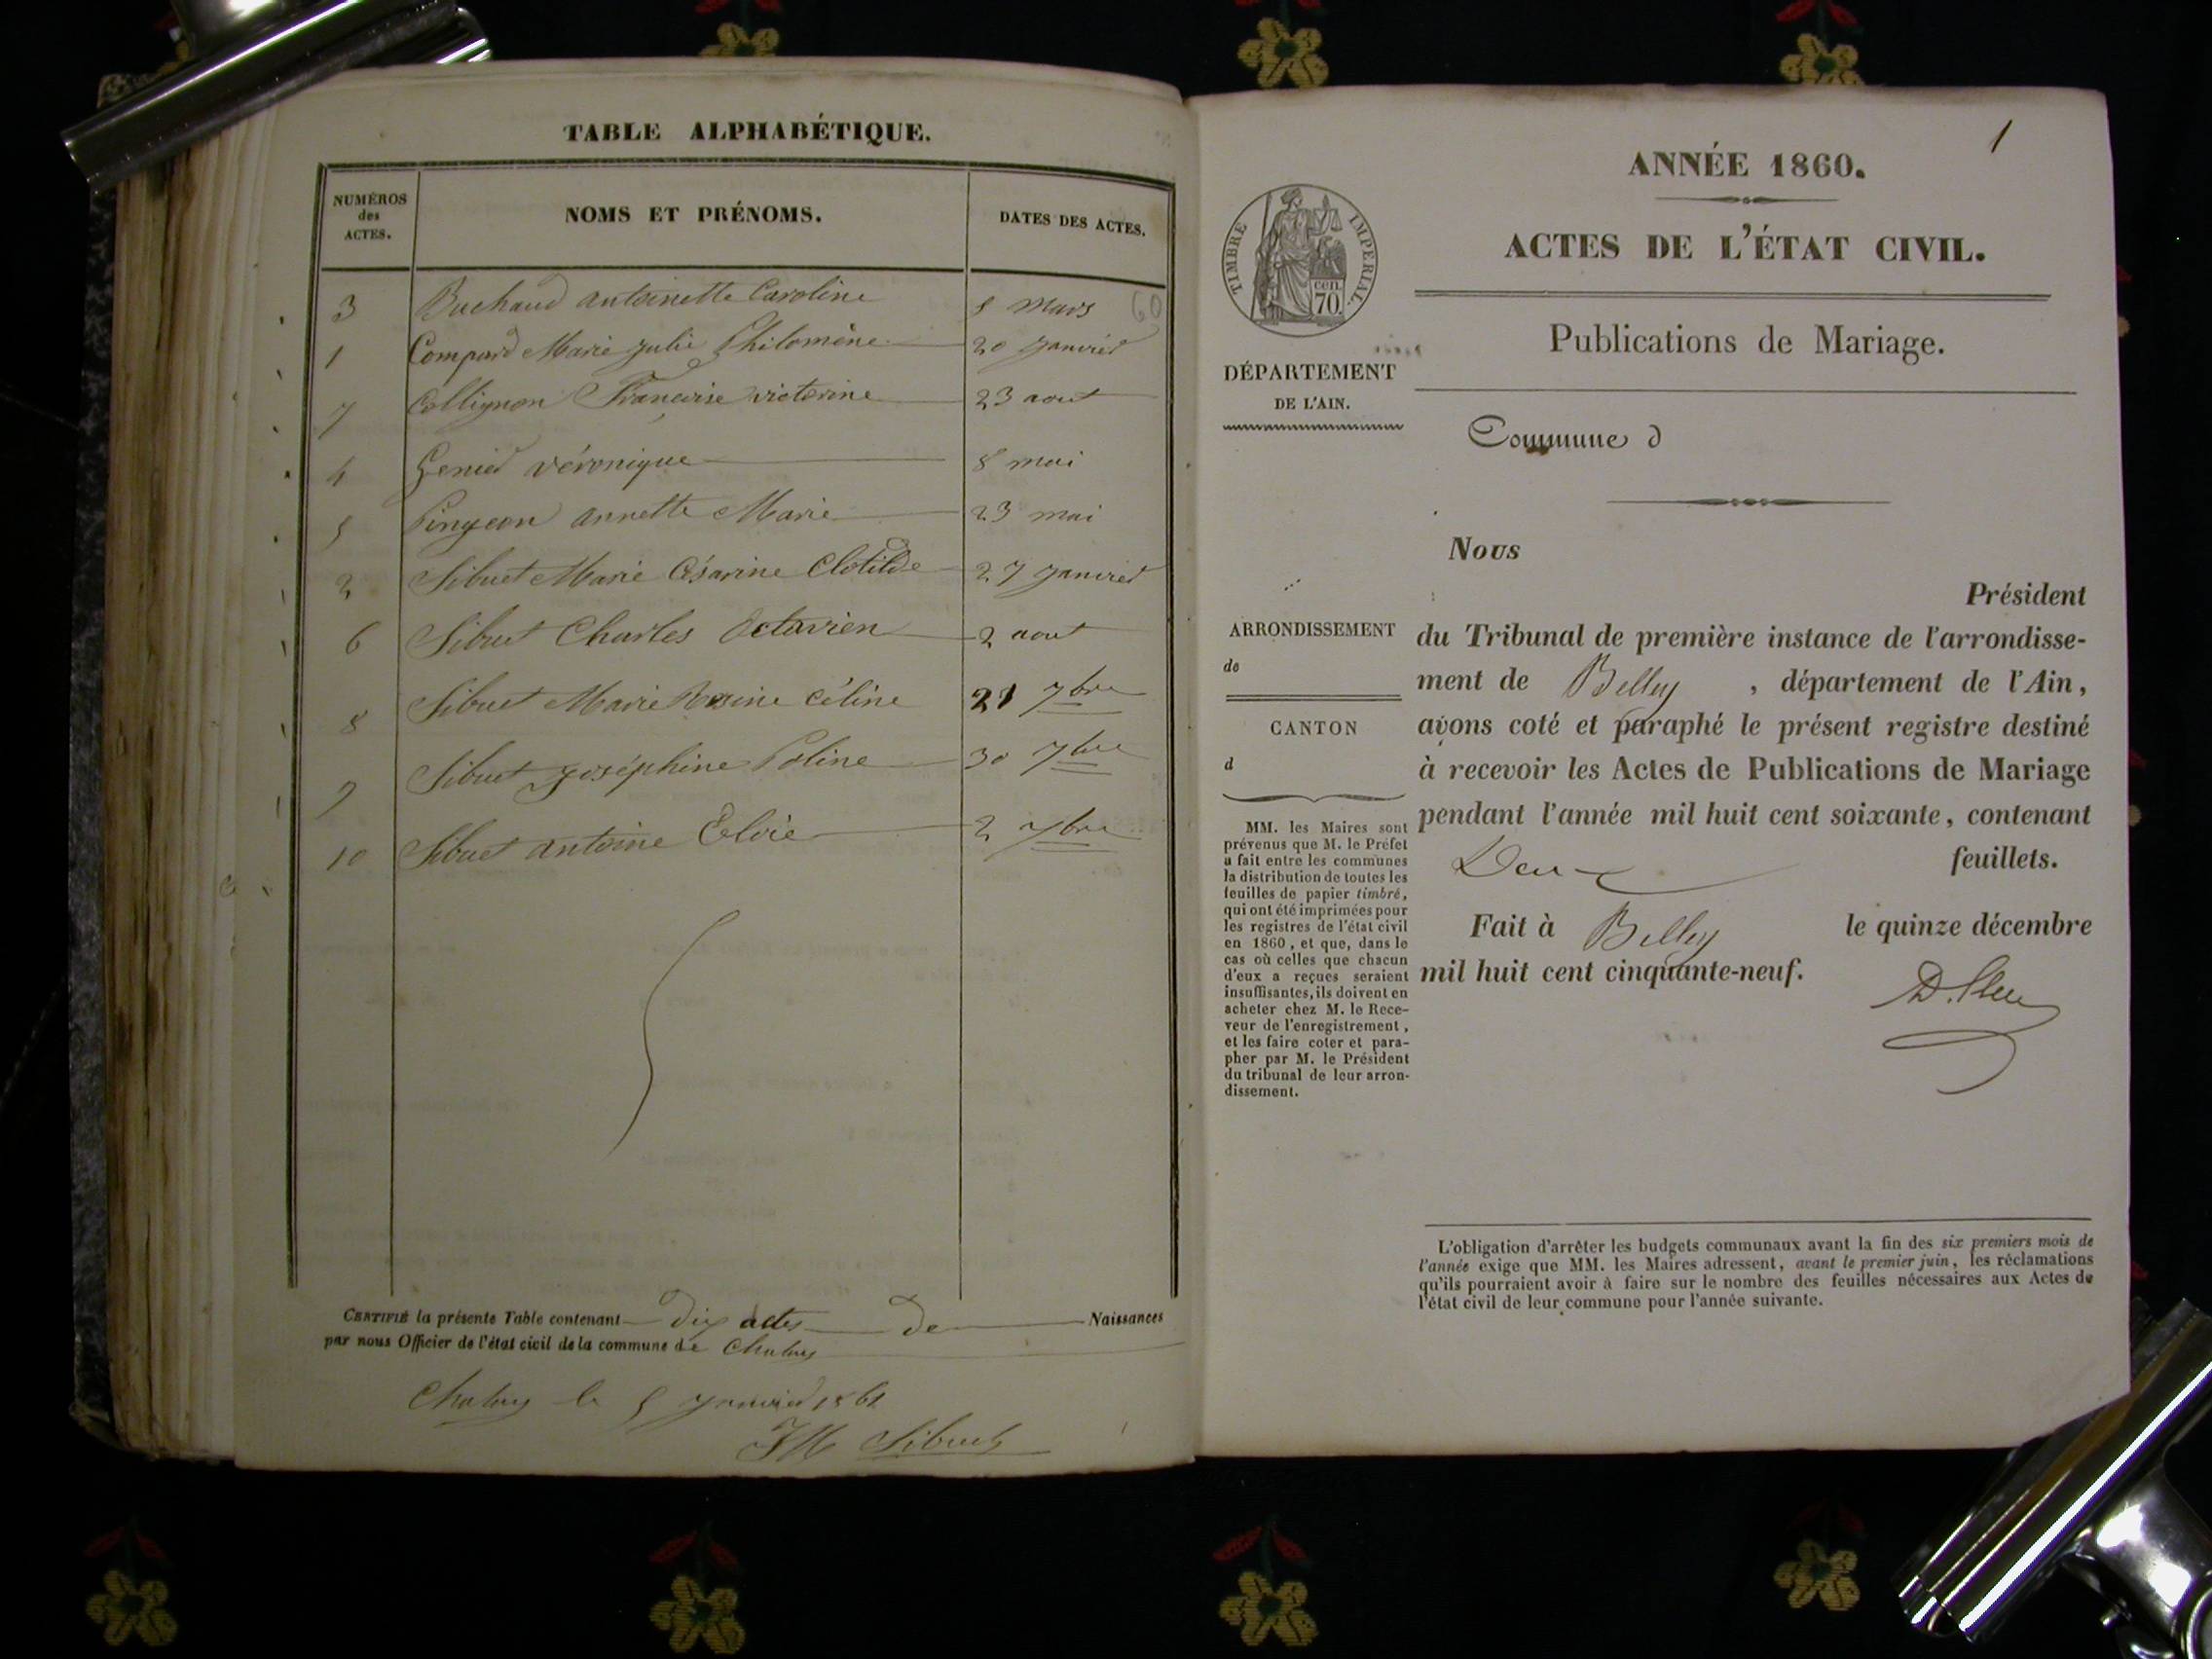 TABLE ALPHABÉTIQUE.
NUMÉROS des ACTES.
NOMS ET PRÉNOMS.
DATES DES ACTES.
3 Buchaud antoinette Caroline 8 Mars 60
1 Compard Marie Julie Philomène 20 Janvier
7 Collignon Francoise victorine 23 aout
4 Genied véronique 8 mai
5 Pingeon annette Marie 23 mai
2 Sibuet Marie Césarine Clotilde 27 Janvier
6 Sibuet Charles Octavien 2 aout
8 Sibuet Marie Rosine Céline 21 7bre
9 Sibuet Joséphine Poline 30 7bre
10 Sibuet antoine Eloie 2 7bre
CERTIFIÉ la présente Table contenant dix actes de Naissances
par nous Officier de l'état civil de la commune de Chaley
Chaley le 5 Janvier 1861
JM Sibuet
1
ANNÉE 1860.
ACTES DE L'ÉTAT CIVIL.
TIMBRE IMPÉRIAL.
cen.
70.
Publications de Mariage.
DÉPARTEMENT
DE L'AIN.
Commune d
Nous
Président
du Tribunal de première instance de l'arrondisse-
ment de Belley, département de l'Ain,
avons coté et paraphé le présent registre destiné
à recevoir les Actes de Publications de Mariage
pendant l'année mil huit cent soixante, contenant
Deux feuillets.
Fait à Belley le quinze décembre
mil huit cent cinquante-neuf.
ARRONDISSEMENT
de
CANTON
d
MM. les Maires sont
prévenus que M. le Préfet
a fait entre les communes
la distribution de toutes les
feuilles de papier timbré,
qui ont été imprimées pour
les registres de l'état civil
en 1860, et que, dans le
cas où celles que chacun
d'eux a reçues seraient
insuffisantes, ils doivent en
acheter chez M. le Rece-
veur de l'enregistrement,
et les faire coter et para-
pher par M. le Président
du tribunal de leur arron-
dissement.
L'obligation d'arrêter les budgets communaux avant la fin des six premiers mois de
l'année exige que MM. les Maires adressent, avant le premier juin, les réclamations
qu'ils pourraient avoir à faire sur le nombre des feuilles nécessaires aux Actes de
l'état civil de leur commune pour l'année suivante.